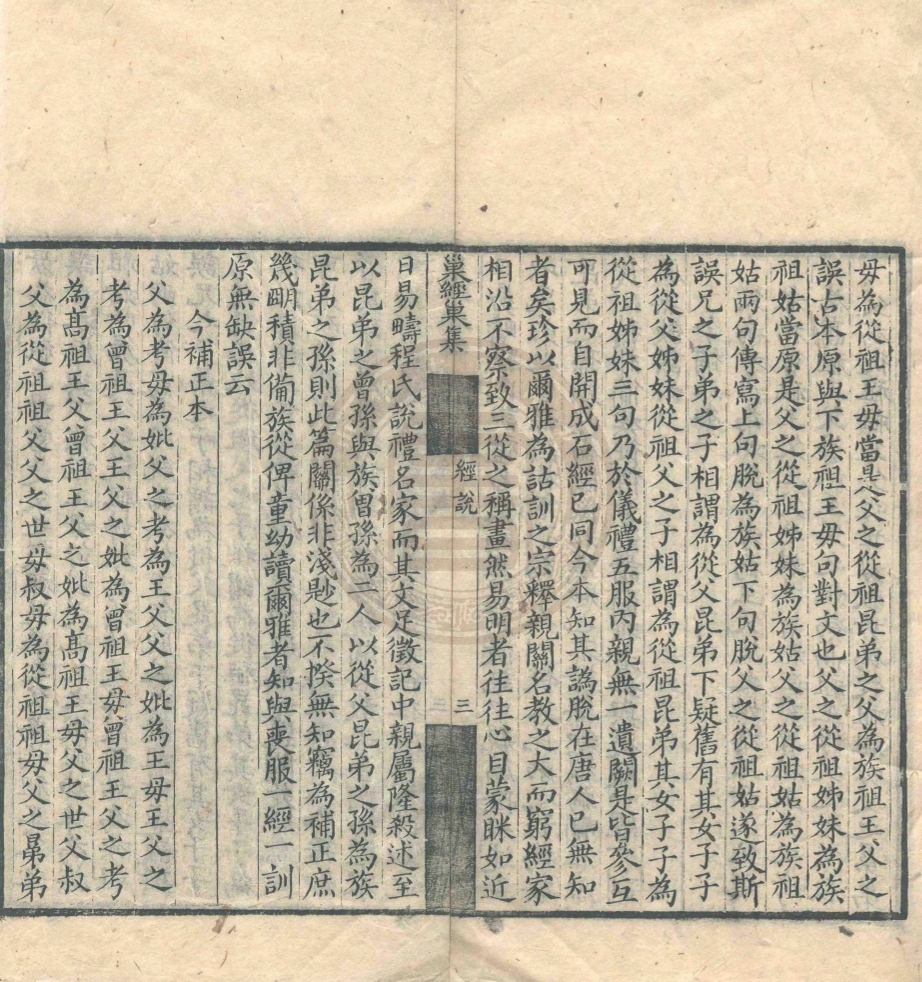 毋為從祖王毋當是父之從祖昆弟之父為族祖王父之
誤古本原與下族祖王毋句對文也父之從祖姊妹為族
祖姑當原是父之從祖姊妹為族姑父之從祖姑為族祖
姑兩句傳寫上句脫為族姑下句脫父之從祖姑遂致斯
誤兄之子弟之子相謂為從父昆弟下疑舊有其女子子
為從父姊妹從祖父之子相謂為從祖昆弟其女子子為
從祖姊妹三句乃於儀禮五服內親無一遺闕是皆參互
可見而自開成石經已同今本知其譌脫在唐人已無知
者矣珍以爾雅為詁訓之宗釋親關名教之大而窮經家
相沿不察致三從之稱畫然易明者往往心目蒙眯如近
巢經巢集
經說
三
日易疇程氏說禮名家而其文足徵記中親屬隆殺述至
以昆弟之曾孫與族曾孫為二人以從父昆弟之孫為族
昆弟之孫則此篇關係非淺尠也不揆無知竊為補正庶
幾朙積非備族從俾童幼讀爾雅者知與喪服一經一訓
原無缺誤云
今補正本
父為考毋為妣父之考為王父父之妣為王毋王父之
考為曾祖王父王父之妣為曾祖王毋曾祖王父之考
為髙祖王父曾祖王父之妣為髙祖王毋父之世父叔
父為從祖祖父父之世毋叔毋為從祖祖毋父之晜弟